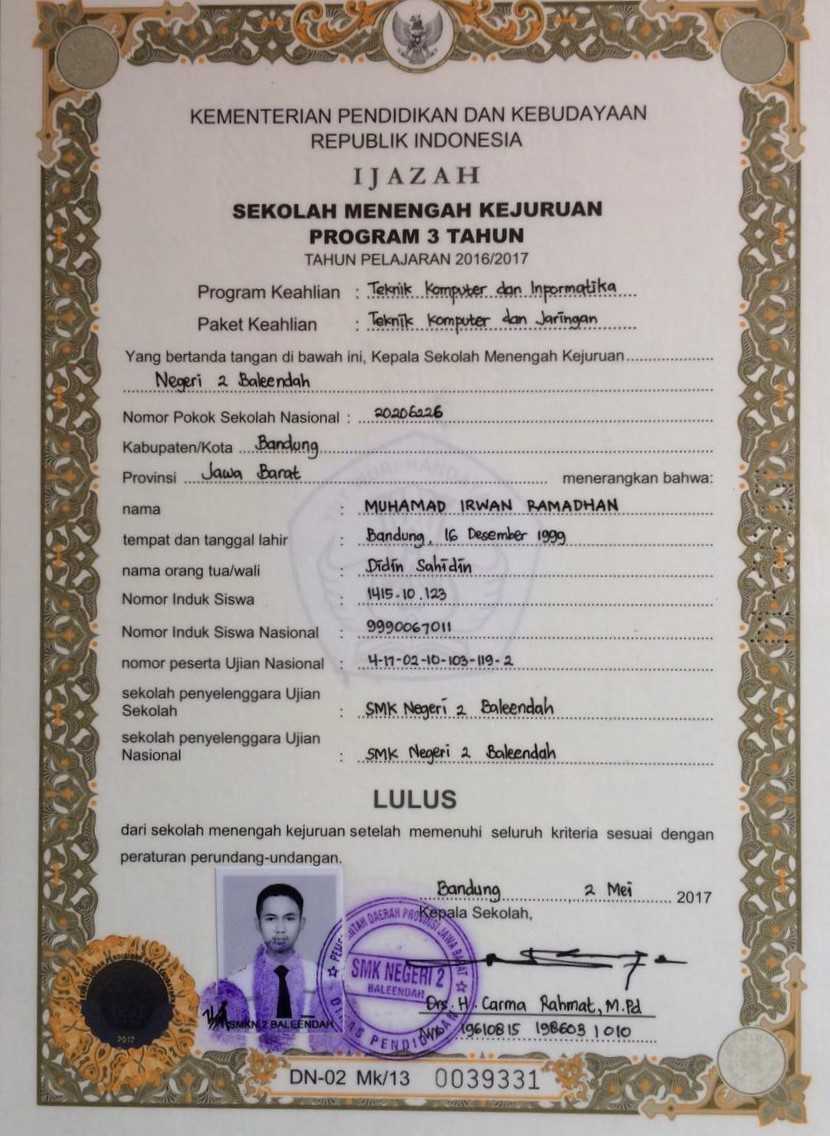 KEMENTERIAN PENDIDIKAN DAN KEBUDAYAAN
REPUBLIK INDONESIA
IJAZAH
SEKOLAH MENENGAH KEJURUAN
PROGRAM 3 TAHUN
TAHUN PELAJARAN 2016/2017
Program Keahlian : Teknik Komputer dan Inpormatika
Paket Keahlian : Teknik Komputer dan Jaringan
Yang bertanda tangan di bawah ini, Kepala Sekolah Menengah Kejuruan
Negeri 2 Baleendah
Nomor Pokok Sekolah Nasional : 20206226
Kabupaten/Kota Bandung
Provinsi Jawa Barat menerangkan bahwa:
nama : MUHAMAD IRWAN RAMADHAN
tempat dan tanggal lahir : Bandung, 16 Desember 1999
nama orang tua/wali : Didin Sahidin
Nomor Induk Siswa : 1415.10.123
Nomor Induk Siswa Nasional : 9990067011
nomor peserta Ujian Nasional : 4-17-02-10-103-119-2
sekolah penyelenggara Ujian
Sekolah : SMK Negeri 2 Baleendah
sekolah penyelenggara Ujian
Nasional : SMK Negeri 2 Baleendah
LULUS
dari sekolah menengah kejuruan setelah memenuhi seluruh kriteria sesuai dengan
peraturan perundang-undangan.
Bandung, 2 Mei 2017
Kepala Sekolah,
PEMERINTAH DAERAH PROVINSI JAWA BARAT
SMK NEGERI 2
BALEENDAH
DINAS PENDIDIKAN
Drs. H. Carma Rahmat, M.Pd
NIP. 19610815 198603 1 010
SMKN 2 BALEENDAH
2017
DN-02 Mk/13 0039331